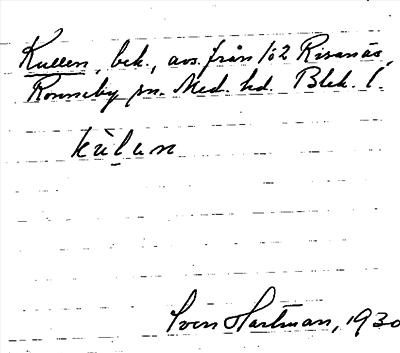 Kullen, bek., avs. från 1/62 Risanäs,
Ronneby sn. Med. hd. Blek. l.
kùlun
Sven Hartman, 1930